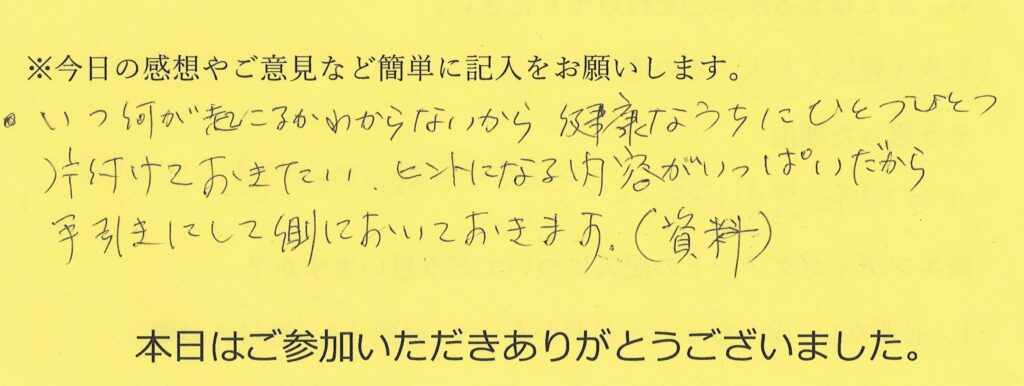 ※今日の感想やご意見など簡単に記入をお願いします。
・いつ何が起こるかわからないから 健康なうちにひとつひとつ
片付けておきたい、ヒントになる内容がいっぱいだから
手引きにして側においておきます。(資料)
本日はご参加いただきありがとうございました。